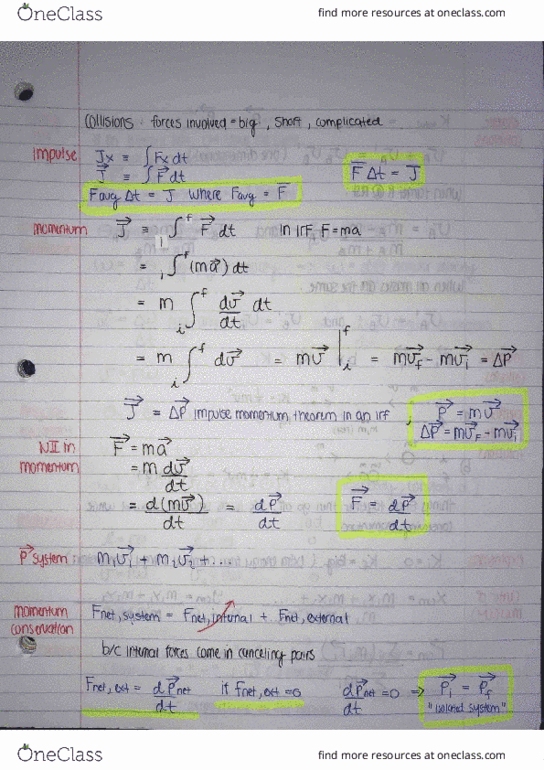 OneClass find more resources at oneclass.com
Collisions forces involved = big, short, complicated
impulse Jx ≡ ∫Fx dt
J⃗ ≡ ∫F⃗ dt F̄ Δt = J
Favg Δt = J where Favg = F̄
momentum J⃗ ≡ i∫f F⃗ dt in irf, F=ma
= i∫f (ma⃗) dt
= m i∫f dv⃗/dt dt
= m i∫f dv⃗ = mv⃗ |i f = mv⃗f - mv⃗i = Δp⃗
J⃗ = Δp⃗ impulse momentum theorem in an irf , p⃗ = mv⃗
Δp⃗ = mv⃗f - mv⃗i
NII in momentum F⃗ = ma⃗
= m dv⃗/dt
= d(mv⃗)/dt = dp⃗/dt F⃗ = dp⃗/dt
p⃗ system m₁v⃗₁ + m₂v⃗₂ + ...
momentum conservation Fnet, system = Fnet, internal + Fnet, external
b/c internal forces come in canceling pairs
Fnet, ext = dp⃗net/dt if Fnet, ext = 0 dp⃗net/dt = 0 ⇒ p⃗i = p⃗f
"isolated system"
OneClass find more resources at oneclass.com